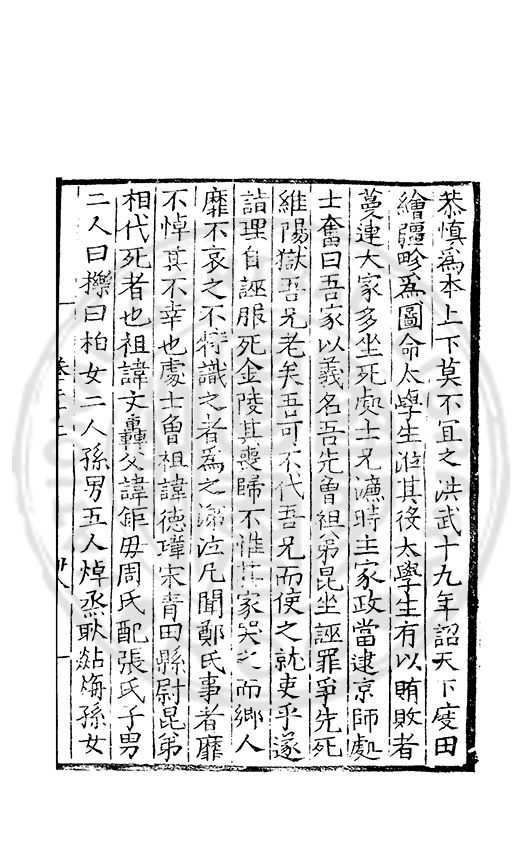 恭慎為本上下莫不宜之洪武十九年詔天下度田
繪疆畛為圖命太學生涖其役太學生有以賄敗者
蔓連大家多坐死處士兄濂時主家政當逮京師處
士奮曰吾家以義名吾先曾祖弟昆坐誣罪爭先死
維陽獄吾兄老矣吾可不代吾兄而使之就吏乎遂
詣理自誣服死金陵其喪歸不惟其家哭之而鄉人
靡不哀之不特識之者為之涕泣凡聞鄭氏事者靡
不悼其不幸也處士曾祖諱德璋宋青田縣尉昆弟
相代死者也祖諱文轟父諱鉅毋周氏配張氏子男
二人曰櫟曰柏女二人孫男五人焯烝耿㷔㷬孫女